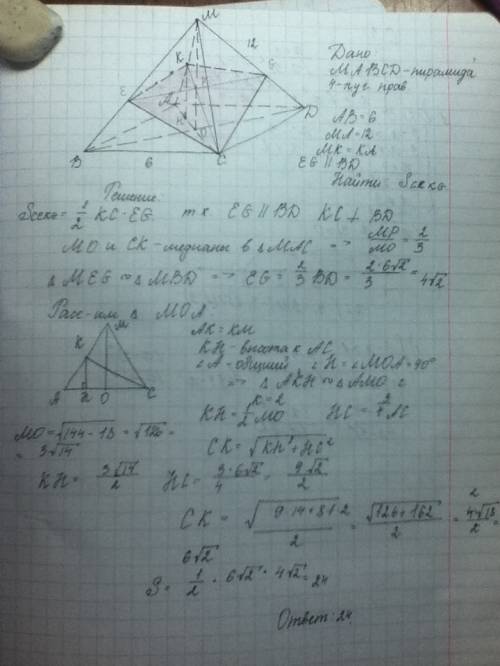 M
12
K
E
G
P
A
D
H
O
B
6
C
Дано
MABCD-пирамида
4-х уг. прав
AB=6
MA=12
MK=KA
EG || BD
Найти: Scekg
Решение:
Scekg= 1/2 KC·EG т.к. EG || BD KC ⊥ BD
MO и CK-медианы в △MAC => MP/MO = 2/3
△MEG ∾ △MBD => EG= 2/3 BD= 2·6√2/3 = 4√2
Расс-им △ MOA:
M
K
A H O C
AK=KM
KH-высота к AC
∠A-общий, ∠H=∠MOA=90°
=> △AKH ∾ △AMO с
k=2
KH= 1/2 MO HC= 3/4 AC
MO=√144-18 = √126 =
= 3√14
CK= √KH²+HC²
KH= 3√14/2 HC= 3·6√2/4 = 9√2/2
CK= √9·14+81·2/2 = √126+162/2 = 4√18/2 =
2
6√2
S= 1/2 · 6√2 · 4√2 = 24
Ответ: 24.